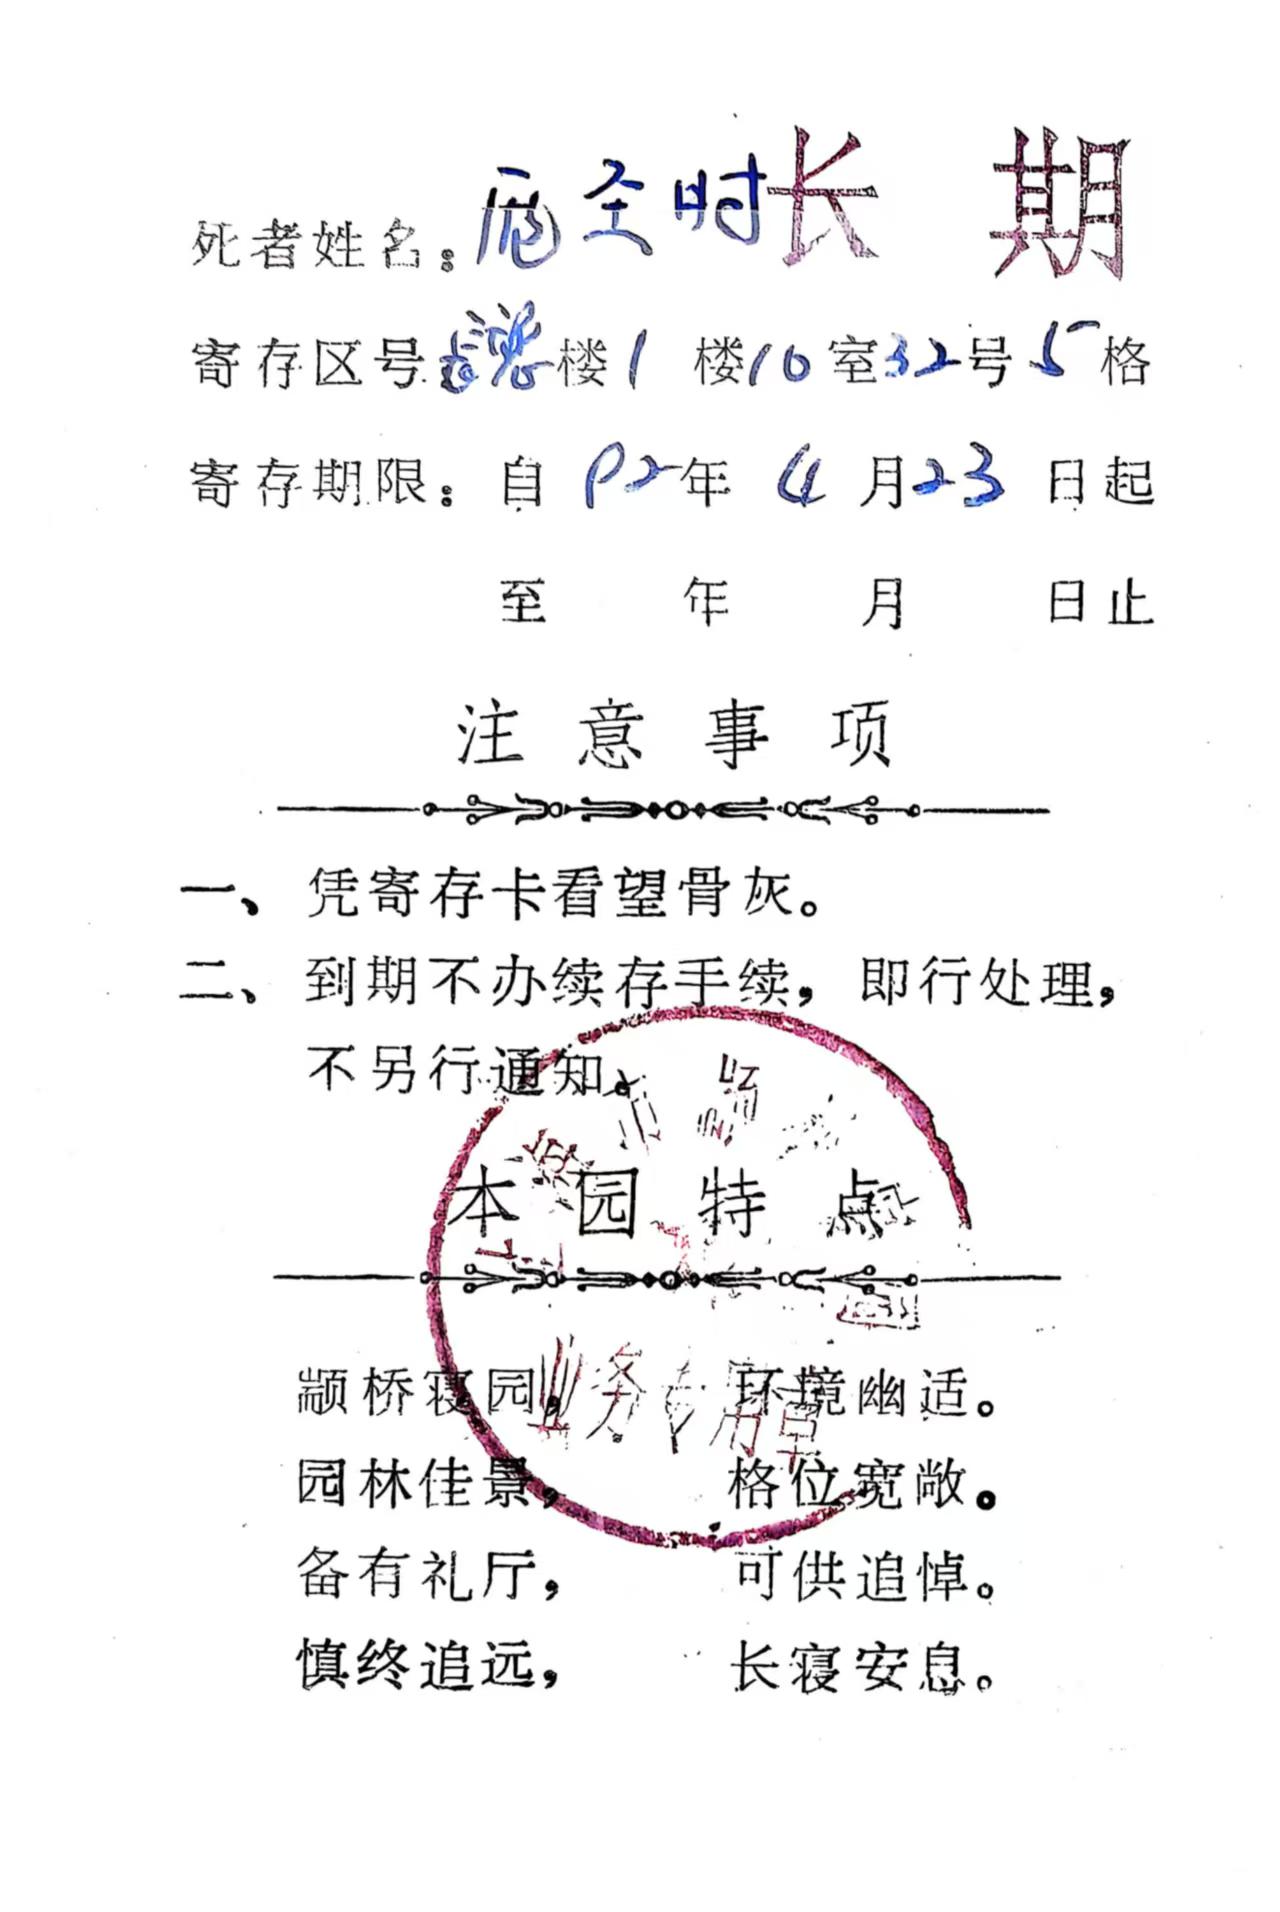 死者姓名：圣时 长期
寄存区号 楼1楼10室32号5格
寄存期限：自92年4月23日起
至 年 月 日止
注意事项
一、凭寄存卡看望骨灰。
二、到期不办续存手续，即行处理，
不另行通知。
本园特点
颛桥寝园，环境幽适。
园林佳景，格位宽敞。
备有礼厅，可供追悼。
慎终追远，长寝安息。
业务专用章